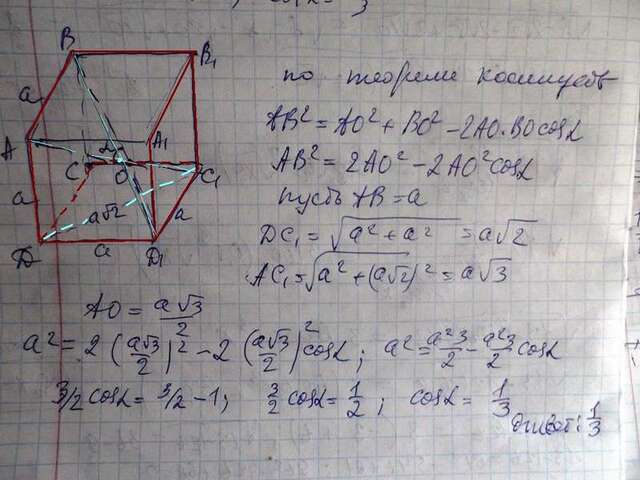 B
B₁
a
A
A₁
α
C
O
C₁
a
a√2
a
D
a
D₁
по теореме косинусов
AB² = AO² + BO² - 2AO·BO cosα
AB² = 2AO² - 2AO² cosα
пусть AB = a
DC₁ = √(a² + a²) = a√2
AC₁ = √(a² + (a√2)²) = a√3
AO = a√3/2
a² = 2(a√3/2)² - 2(a√3/2)² cosα; a² = a²3/2 - a²3/2 cosα
3/2 cosα = 3/2 - 1; 3/2 cosα = 1/2; cosα = 1/3
ответ: 1/3